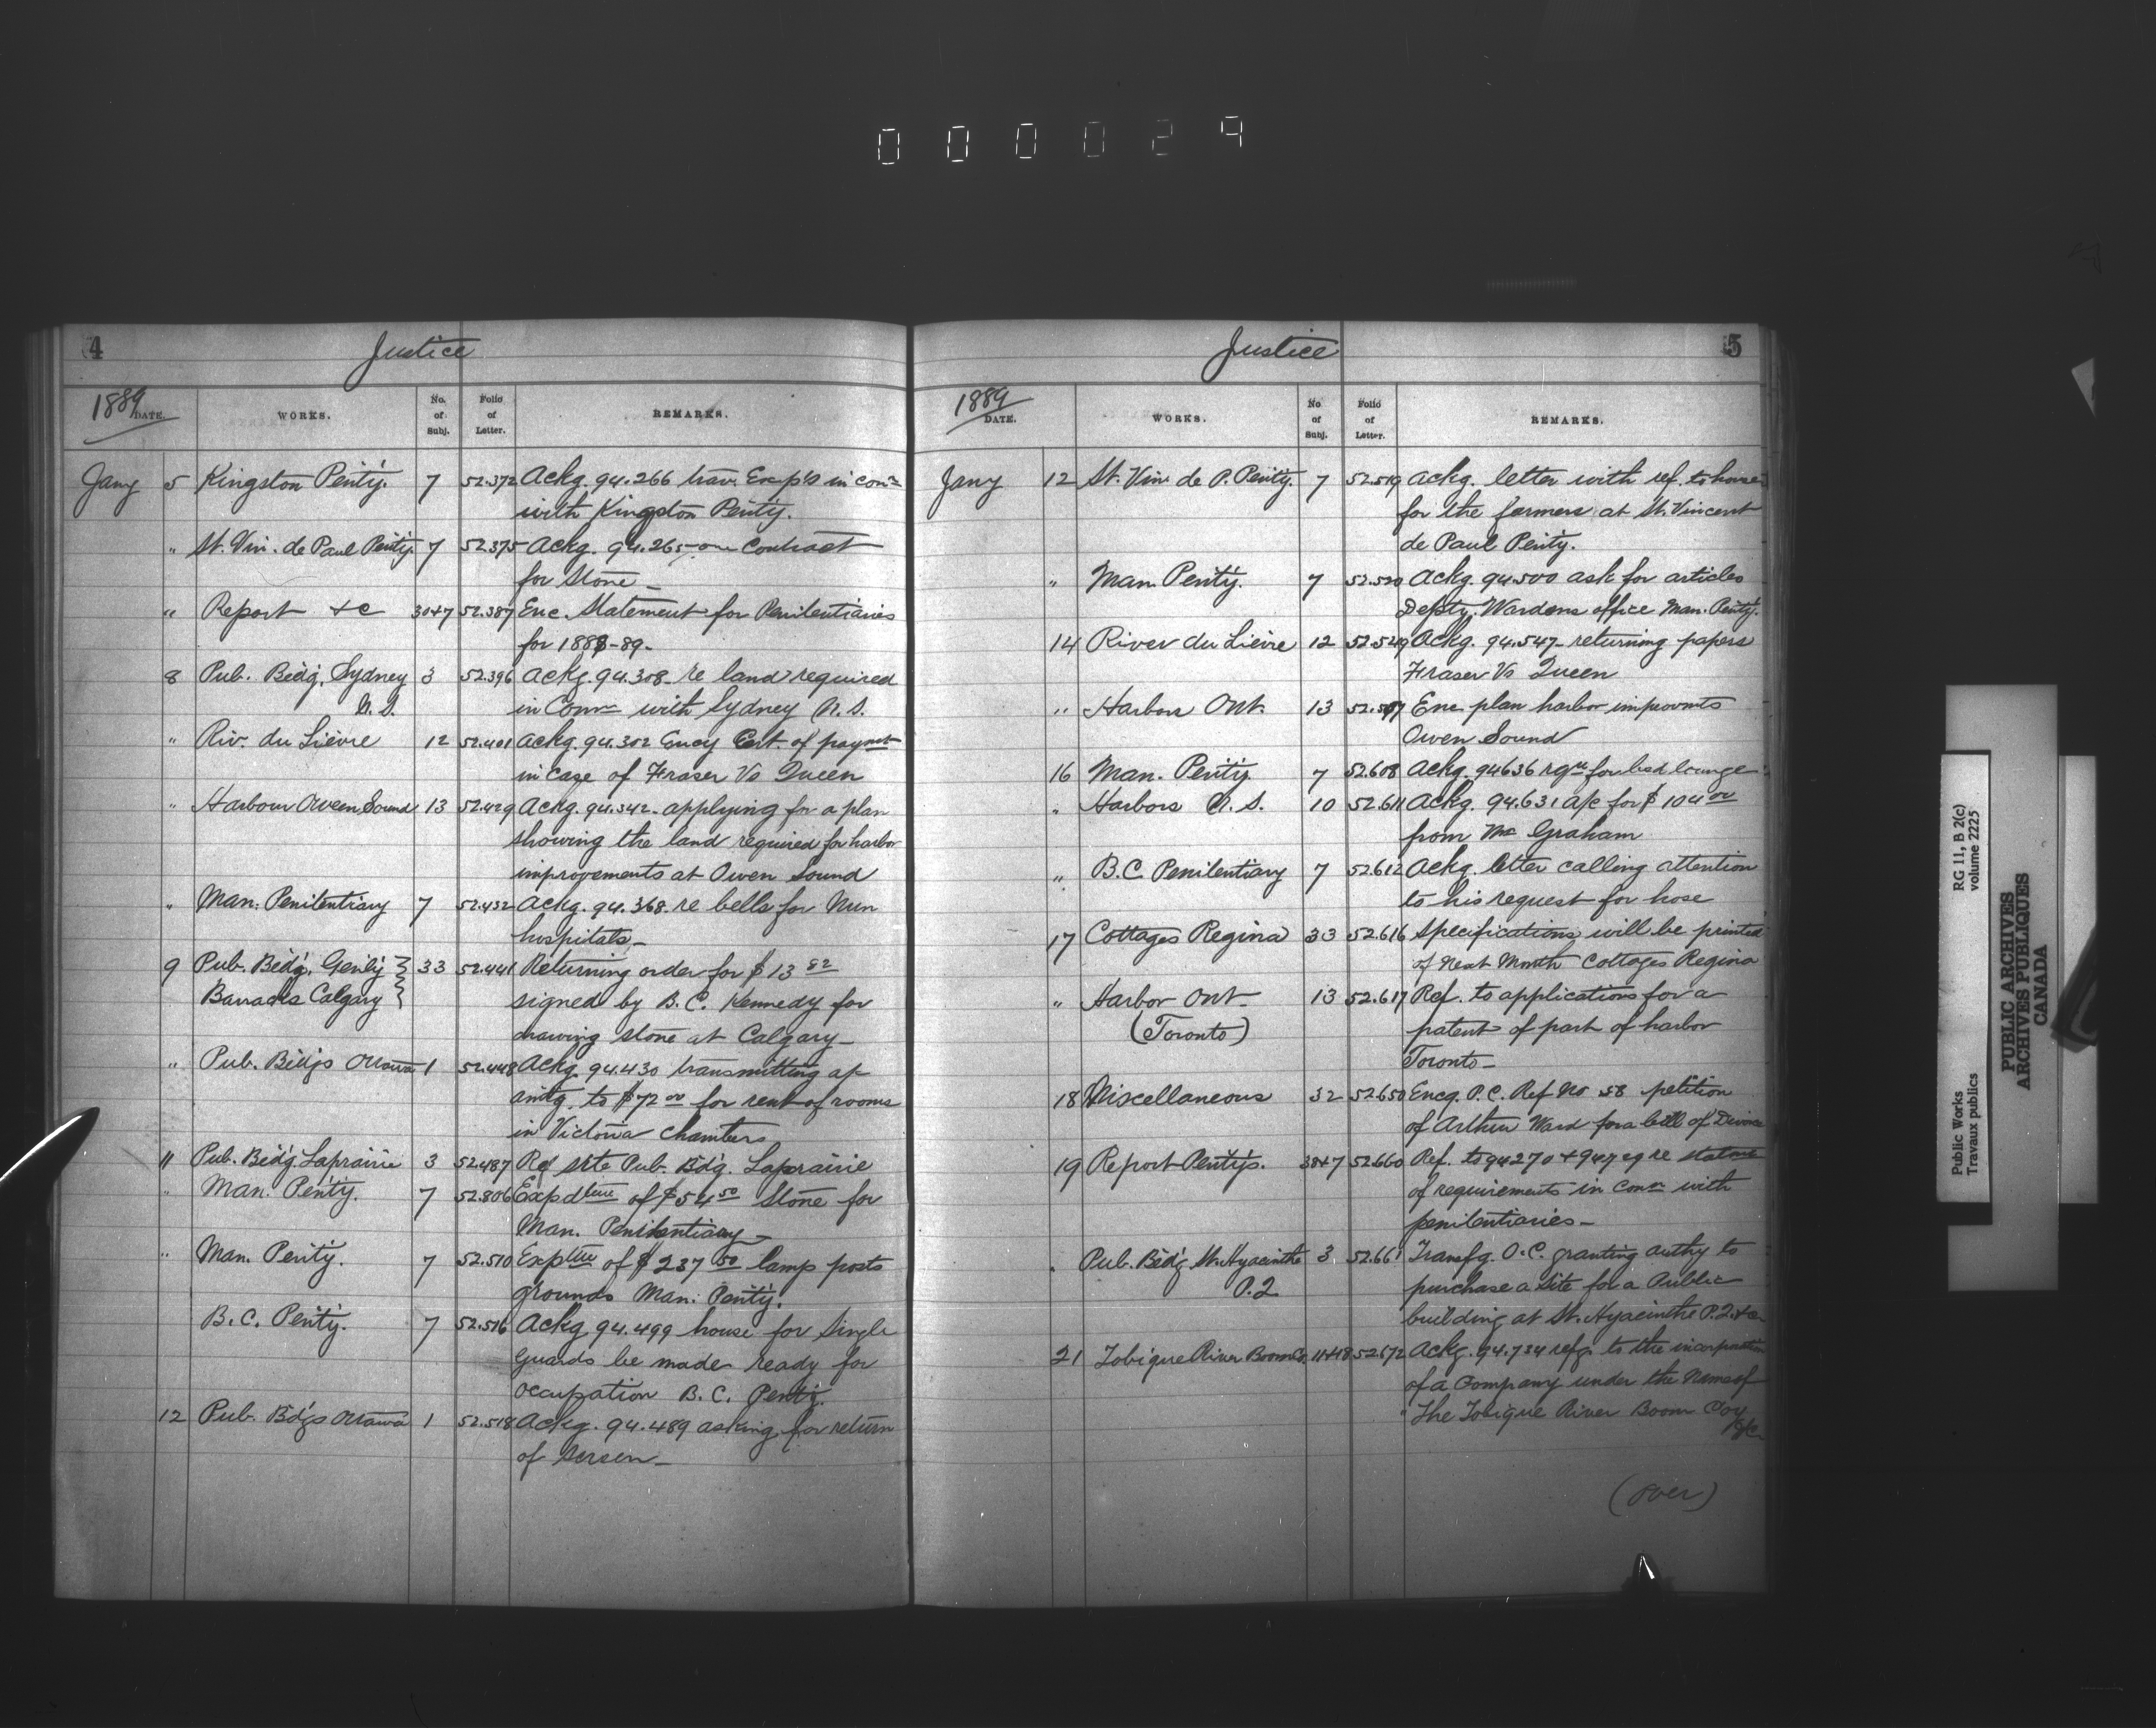 000029
4
Justice
1889 DATE. WORKS. No. of Subj. Folio of Letter. REMARKS.
Jany 5 Kingston Penty. 7 52.372 Ackg. 94.266 trav. Exp's in conn
with Kingston Penty.
" St. Vin. de Paul Penty. 7 52.375 Ackg. 94.265 on Contract
for Stone_
" Report &c 30+7 52.387 Enc. Statement for Penitentiaries
for 1888-89_
8 Pub. Bldg. Sydney 3 52.396 Ackg. 94.308_ re land required
N.S. in Conn with Sydney N.S.
" Riv. du Lièvre 12 52.401 Ackg. 94.302 Ency Cert. of paymt
in case of Fraser Vs Queen
" Harbour Owen Sound 13 52.429 Ackg. 94.342_ applying for a plan
showing the land required for harbor
improvements at Owen Sound
" Man. Penitentiary 7 52.432 Ackg. 94.368. re bells for
hospitals_
9 Pub. Bldg. Genly 33 52.441 Returning order for $13 82
Barracks Calgary signed by B.C. Kennedy for
drawing stone at Calgary_
" Pub. Bldgs Ottawa 1 52.448 Ackg. 94.430 transmitting a/c
amtg. to $72 00 for rent of rooms
in Victoria Chambers
11 Pub. Bldg. Laprairie 3 52.487 Ref site Pub. Bdg. Laprairie
" Man. Penty. 7 52.506 Expdture of $54 50 Stone for
Man. Penitentiary_
" Man. Penty. 7 52.510 Expture of $237 50 lamp posts
grounds Man. Penty.
B.C. Penty. 7 52.516 Ackg 94.499 house for Single
Guards be made ready for
occupation B.C. Penty.
12 Pub. Bdgs Ottawa 1 52.518 Ackg. 94.489 asking for return
of
5
Justice
1889 DATE. WORKS. No of Subj. Folio of Letter. REMARKS.
Jany 12 St. Vin. de P. Penty. 7 52.519 Ackg. letter with ref. to house
for the farmers at St. Vincent
de Paul Penty.
" Man. Penty. 7 52.520 Ackg. 94.500 ask for articles
Depty. Wardens office Man. Penty.
14 River du Lièvre 12 52.549 Ackg. 94.547_ returning papers
Fraser Vs Queen
" Harbors Ont. 13 Enc plan harbor improvmts
Owen Sound
16 Man. Penty. 7 52.608 Ackg. 94636 for bed lounge
" Harbors N.S. 10 52.611 Ackg. 94.631 a/c for $104 00
from Mc Graham
" B.C. Penitentiary 7 52.612 Ackg. letter calling attention
to his request for hose
17 Cottages Regina 33 52.616 Specifications will be printed
of Next Month Cottages Regina
" Harbor Ont. 13 52.617 Ref. to applications for a
(Toronto) patent of part of harbor
Toronto_
18 Miscellaneous 32 52.650 Encg. P.C. Ref No 58 petition
of Arthur Ward for a bill of Divorce
19 Report Pentys. 30+7 52.660 Ref. to 94270 + re
of requirements in conn with
penitentiaries_
" Pub. Bldg St. Hyacinthe 3 52.661 Transfg. O.C. granting authy to
P.Q. purchase a site for a Public
building at St. Hyacinthe P.Q. &c
21 Tobique River Boom Co. 11+18 52.672 Ackg. 94.734 refg. to the incorporation
of a Company under the Name of
"The Tobique River Boom Coy
&c
(Over)
Public Works
Travaux publics
RG 11, B 2(c)
volume 2225
PUBLIC ARCHIVES
ARCHIVES PUBLIQUES
CANADA